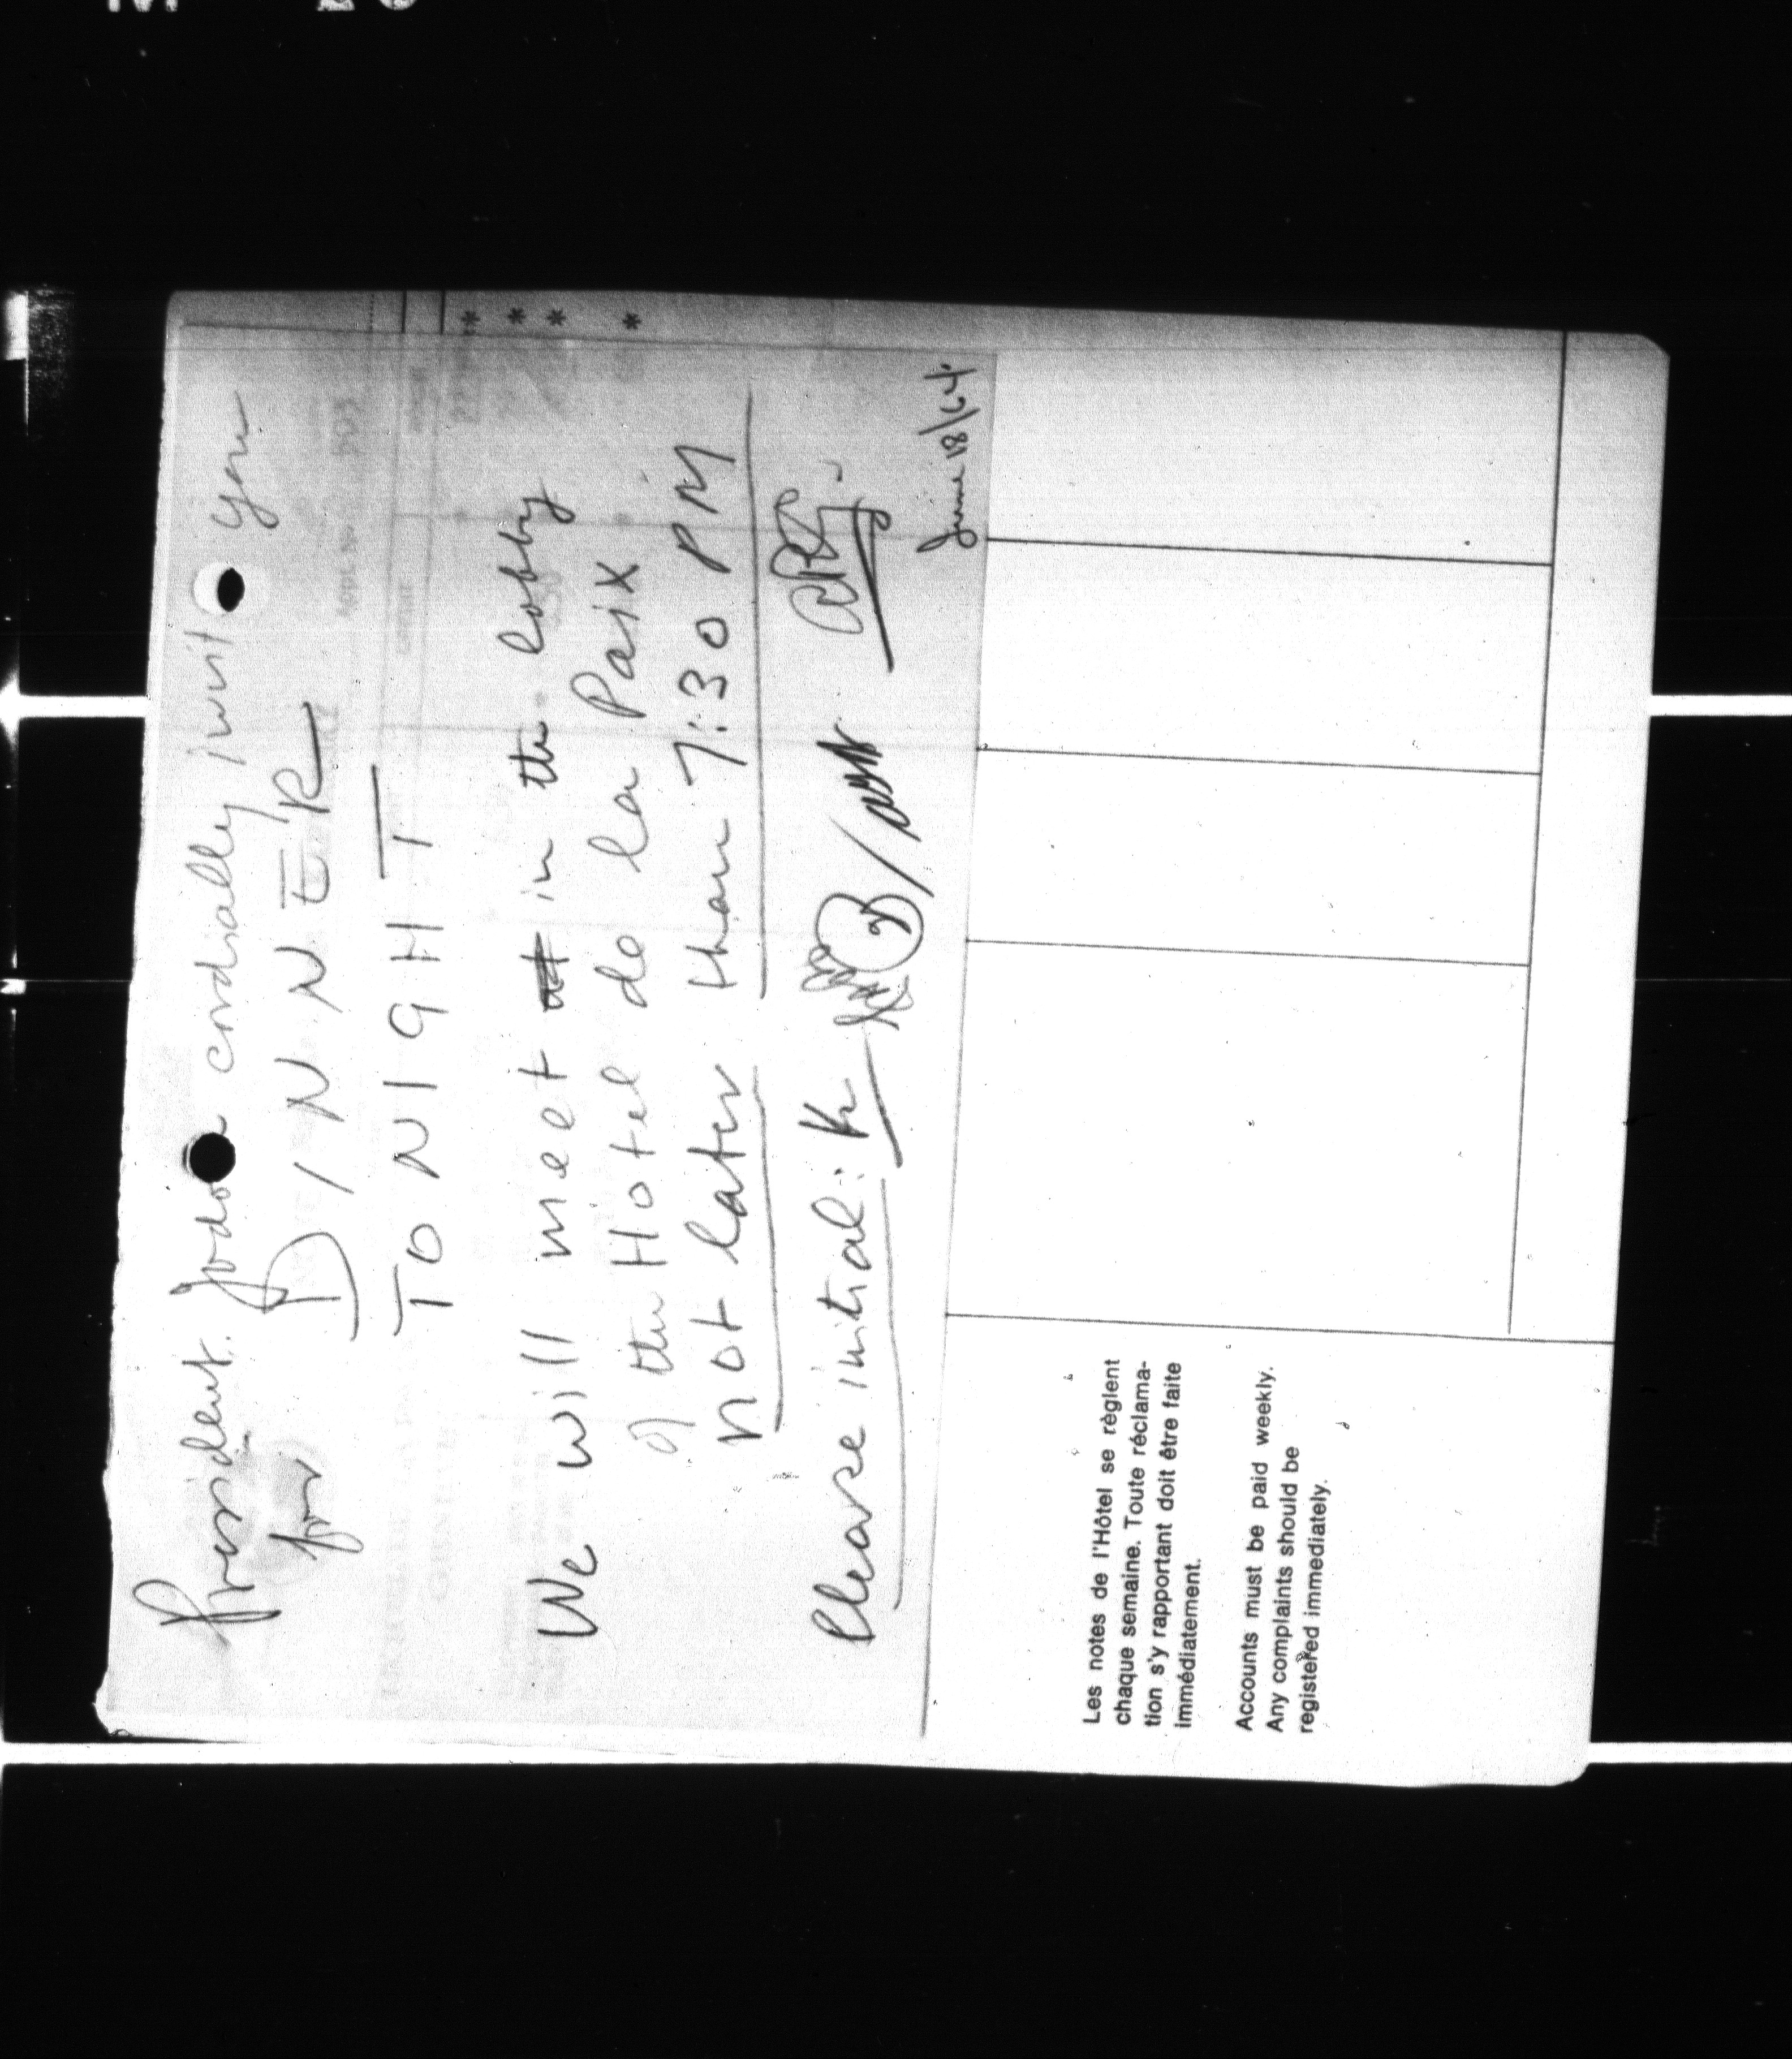 President Jodoin cordially invite you
for DINNER
TONIGHT
We will meet in the lobby
of the Hotel de la Paix
not later than 7:30 PM
Please initial:
June 18/64
Les notes de l'Hôtel se règlent
chaque semaine. Toute réclama-
tion s'y rapportant doit être faite
immédiatement.
Accounts must be paid weekly.
Any complaints should be
registered immediately.